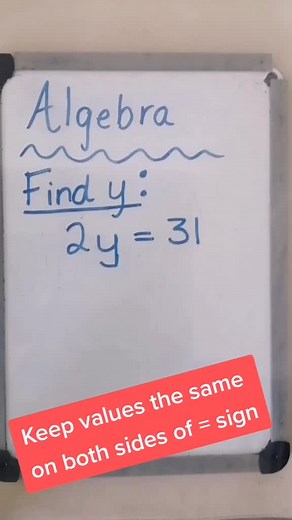 Algebra
Find y:
2y = 31
Keep values the same
on both sides of = sign